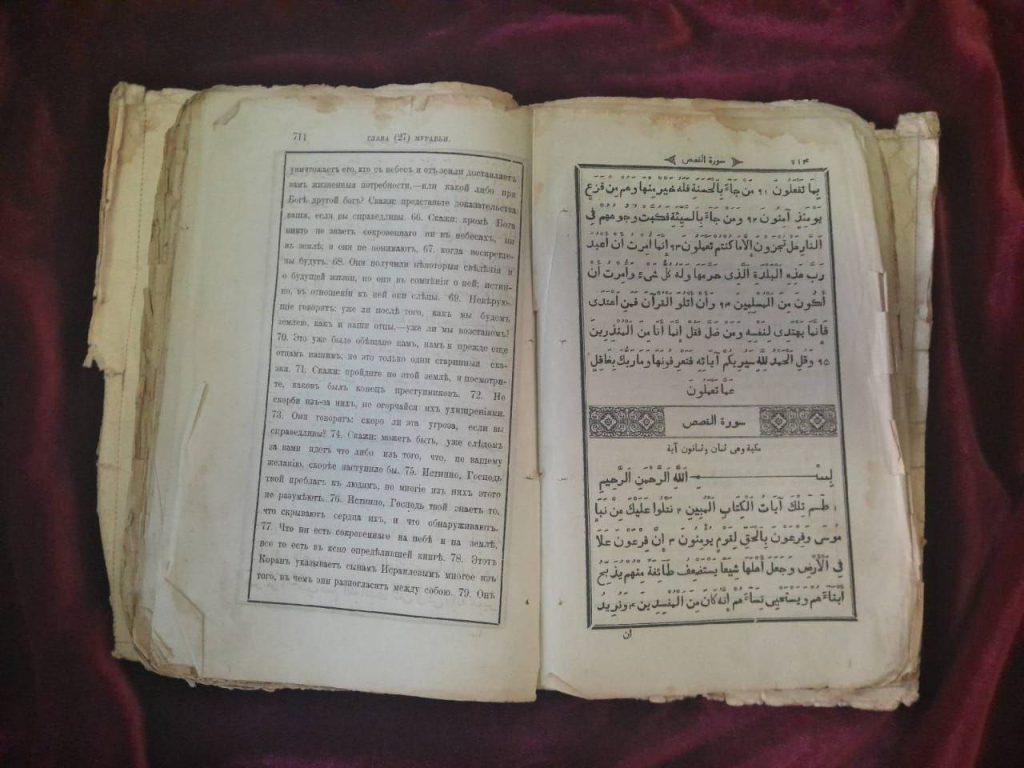 711
ГЛАВА (27) МУРАВЬИ.
уничтожаетъ его, кто съ небесъ и отъ земли доставляетъ
вамъ жизненныя потребности,—или какой либо при
Богѣ другой богъ? Скажи: представьте доказательства
ваши, если вы справедливы. 66. Скажи: кромѣ Бога
никто не знаетъ сокровеннаго ни въ небесахъ, ни
въ землѣ; и они не понимаютъ, 67. когда воскреше-
ны будутъ. 68. Они получили нѣкоторыя свѣдѣнія и
о будущей жизни, но они въ сомнѣніи о ней; истин-
но, въ отношеніи къ ней они слѣпы. 69. Невѣрую-
щіе говорятъ: уже ли послѣ того, какъ мы будемъ
землею, какъ и наши отцы,—уже ли мы возстанемъ?
70. Это уже было обѣщано намъ, намъ и прежде еще
отцамъ нашимъ, но это только одни старинныя ска-
зки. 71. Скажи: пройдите по этой землѣ, и посмотри-
те, каковъ былъ конецъ преступниковъ. 72. Не
скорби изъ-за нихъ, не огорчайся ихъ ухищреніями.
73. Они говорятъ: скоро ли эта угроза, если вы
справедливы? 74. Скажи: можетъ быть, уже слѣдомъ
за вами идетъ что либо изъ того, что, по вашему
желанію, скорѣе наступило бы. 75. Истинно, Господь
твой преблагъ къ людямъ, но многіе изъ нихъ этого
не разумѣютъ. 76. Истинно, Господь твой знаетъ то,
что скрываютъ сердца ихъ, и что обнаруживаютъ.
77. Что ни есть сокровеннаго на небѣ и на землѣ,
все то есть въ ясно опредѣлившей книгѣ. 78. Этотъ
Коранъ указываетъ сынамъ Израилевымъ многое изъ
того, въ чемъ они разногласятъ между собою. 79. Онъ
سورة القصص
٧١٢
بِمَا تَفْعَلُونَ ٩١ مَنْ جَاءَ بِالْحَسَنَةِ فَلَهُ خَيْرٌ مِنْهَا وَهُمْ مِنْ فَزَعٍ
يَوْمَئِذٍ آمِنُونَ ٩٢ وَمَنْ جَاءَ بِالسَّيِّئَةِ فَكُبَّتْ وُجُوهُهُمْ فِى
النَّارِ هَلْ تُجْزَوْنَ إِلَّا مَا كُنْتُمْ تَعْمَلُونَ ٩٣ إِنَّمَا أُمِرْتُ أَنْ أَعْبُدَ
رَبَّ هٰذِهِ الْبَلْدَةِ الَّذِى حَرَّمَهَا وَلَهُ كُلُّ شَىْءٍ وَأُمِرْتُ أَنْ
أَكُونَ مِنَ الْمُسْلِمِينَ ٩٤ وَأَنْ أَتْلُوَ الْقُرْآنَ فَمَنِ اهْتَدَى
فَإِنَّمَا يَهْتَدِى لِنَفْسِهِ وَمَنْ ضَلَّ فَقُلْ إِنَّمَا أَنَا مِنَ الْمُنْذِرِينَ
٩٥ وَقُلِ الْحَمْدُ لِلَّهِ سَيُرِيكُمْ آيَاتِهِ فَتَعْرِفُونَهَا وَمَا رَبُّكَ بِغَافِلٍ
عَمَّا تَعْمَلُونَ
سورة القصص
مكية وهى ثمان وثمانون آية
بِسْمِ اللَّهِ الرَّحْمٰنِ الرَّحِيمِ
١ طسم تِلْكَ آيَاتُ الْكِتَابِ الْمُبِينِ ٢ نَتْلُوا عَلَيْكَ مِنْ نَبَإِ
مُوسَى وَفِرْعَوْنَ بِالْحَقِّ لِقَوْمٍ يُؤْمِنُونَ ٣ إِنَّ فِرْعَوْنَ عَلَا
فِى الْأَرْضِ وَجَعَلَ أَهْلَهَا شِيَعًا يَسْتَضْعِفُ طَائِفَةً مِنْهُمْ يُذَبِّحُ
أَبْنَاءَهُمْ وَيَسْتَحْيِى نِسَاءَهُمْ إِنَّهُ كَانَ مِنَ الْمُفْسِدِينَ ٤ وَنُرِيدُ
ان